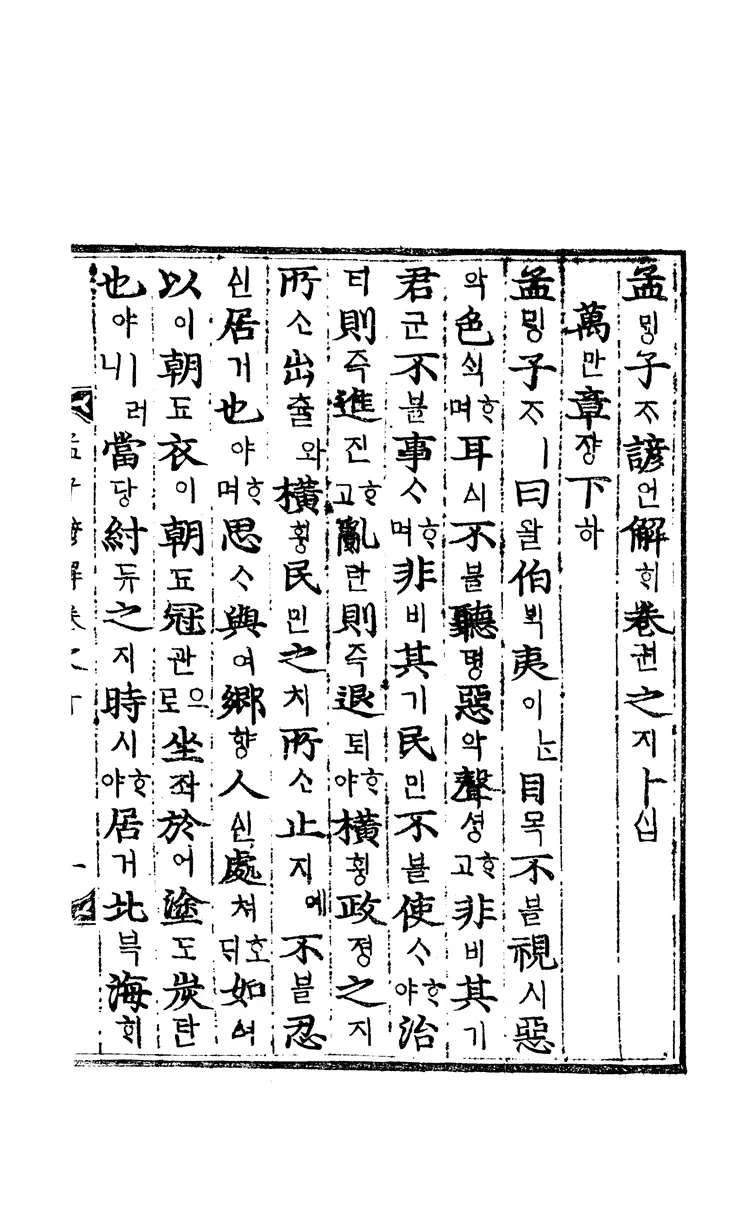 孟ᄆᆡᆼ子ᄌᆞ諺언解ᄒᆡ卷권之지十십
萬만章쟝下하
孟ᄆᆡᆼ子ᄌᆞㅣ曰왈伯ᄇᆡᆨ夷이ᄂᆞᆫ目목不블視시惡
악色ᄉᆡᆨᄒᆞ며耳ᅀᅵ不블聽텽惡악聲셩ᄒᆞ고非비其기
君군不블事ᄉᆞᄒᆞ며非비其기民민不블使ᄉᆞᄒᆞ야治
티則즉進진ᄒᆞ고亂란則즉退퇴ᄒᆞ야橫ᄒᆡᆼ政졍之지
所소出츌와橫ᄒᆡᆼ民민之지所소止지예不블忍
ᅀᅵᆫ居거也야ᄒᆞ며思ᄉᆞ與여鄕향人ᅀᅵᆫ處쳐호ᄃᆡ如ᅀᅧ
以이朝됴衣의朝됴冠관으로坐좌於어塗도炭탄
也야ㅣ러니當당紂듀之지時시ᄒᆞ야居거北븍海ᄒᆡ
孟子諺解卷之十
一